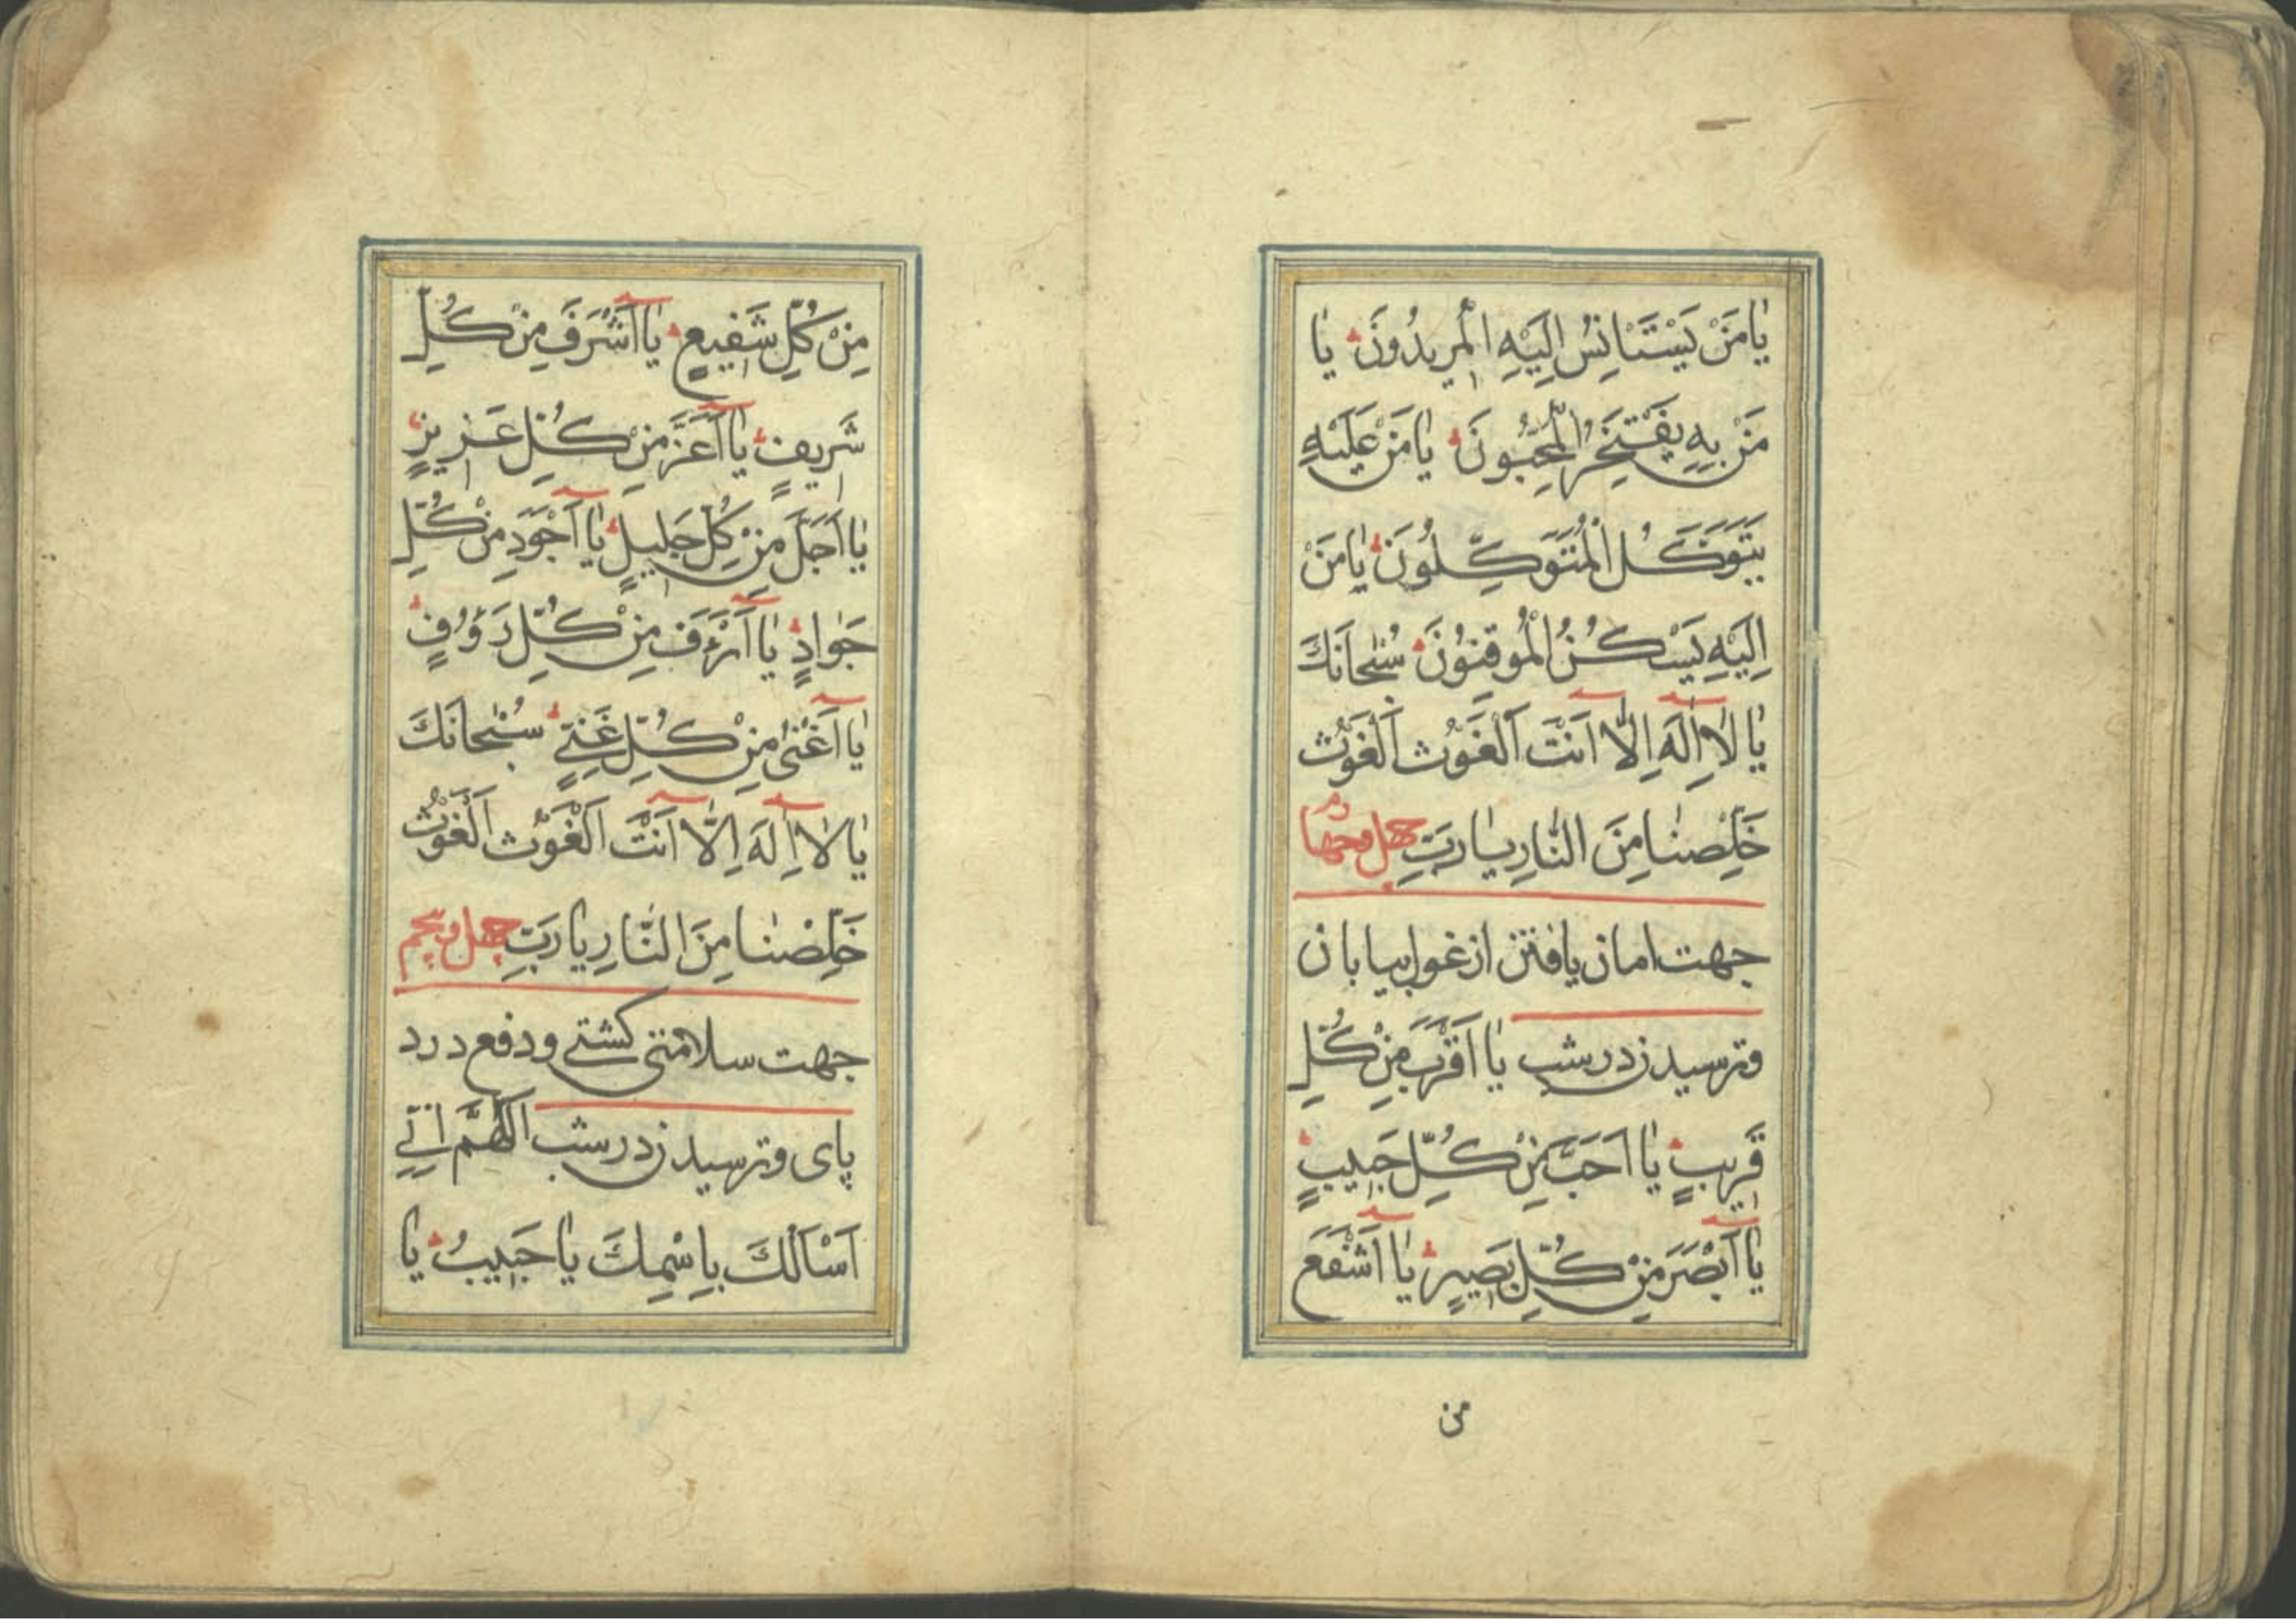 يٰا مَنْ يَسْتَانِسُ اِلَيْهِ الْمُرِيدُونَ يٰا
مَنْ بِهِ يَفْتَخِرُ الْمُحِبُّونَ يٰا مَنْ عَلَيْهِ
يَتَوَكَّلُ الْمُتَوَكِّلُونَ يٰا مَنْ
اِلَيْهِ يَسْكُنُ الْمُوقِنُونَ سُبْحٰانَكَ
يٰا لٰا اِلٰهَ اِلّٰا اَنْتَ اَلْغَوْثَ اَلْغَوْثَ
خَلِّصْنٰا مِنَ النّٰارِ يٰا رَبِّ چهل وچهارم
جهت امان يافتن از غول بيابان
وترسيدن در شب يٰا اَقْرَبَ مِنْ كُلِّ
قَرِيبٍ يٰا اَحَبَّ مِنْ كُلِّ حَبِيبٍ
يٰا اَبْصَرَ مِنْ كُلِّ بَصِيرٍ يٰا اَشْفَعَ
من
مِنْ كُلِّ شَفِيعٍ يٰا اَشْرَفَ مِنْ كُلِّ
شَرِيفٍ يٰا اَعَزَّ مِنْ كُلِّ عَزِيزٍ
يٰا اَجَلَّ مِنْ كُلِّ جَلِيلٍ يٰا اَجْوَدِ مِنْ كُلِّ
جَوٰادٍ يٰا اَرْءَفَ مِنْ كُلِّ رَؤُفٍ
يٰا اَغْنىٰ مِنْ كُلِّ غَنِيٍّ سُبْحٰانَكَ
يٰا لٰا اِلٰهَ اِلّٰا اَنْتَ اَلْغَوْثَ اَلْغَوْثَ
خَلِّصْنٰا مِنَ النّٰارِ يٰا رَبِّ چهل وپنجم
جهت سلامتى كشتى ودفع درد
پاى وترسيدن در شب اَللّٰهُمَّ اِنّى
اَسْاَلُكَ بِاِسْمِكَ يٰا حَبِيبُ يٰا